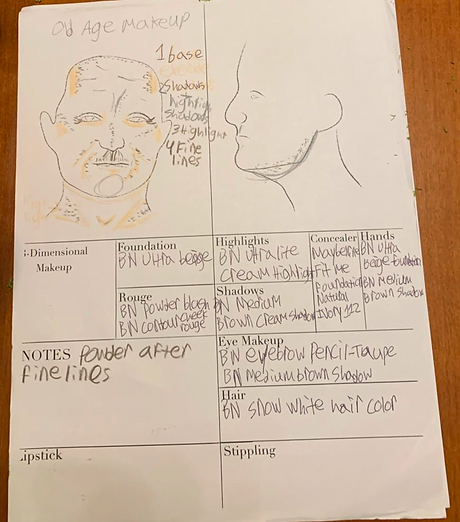 Old Age Makeup
1 base
2 Shadows
highlight
Shadows
3 Highlight
4 Fine
lines
3-Dimensional
Makeup
Foundation
BN Ultra beige
Highlights
BN Ultralite
Cream Highlight
Concealer
Maybelline
Fit Me
Foundation
Natural
Ivory 112
Hands
BN Ultra
Beige foundation
BN Medium
Brown Shadow
Rouge
BN Powder blush
BN Contour cheek
rouge
Shadows
BN Medium
Brown Cream Shadow
NOTES Powder after
fine lines
Eye Makeup
BN eyebrow Pencil-Taupe
BN Medium brown Shadow
Hair
BN Snow white hair color
Lipstick
Stippling